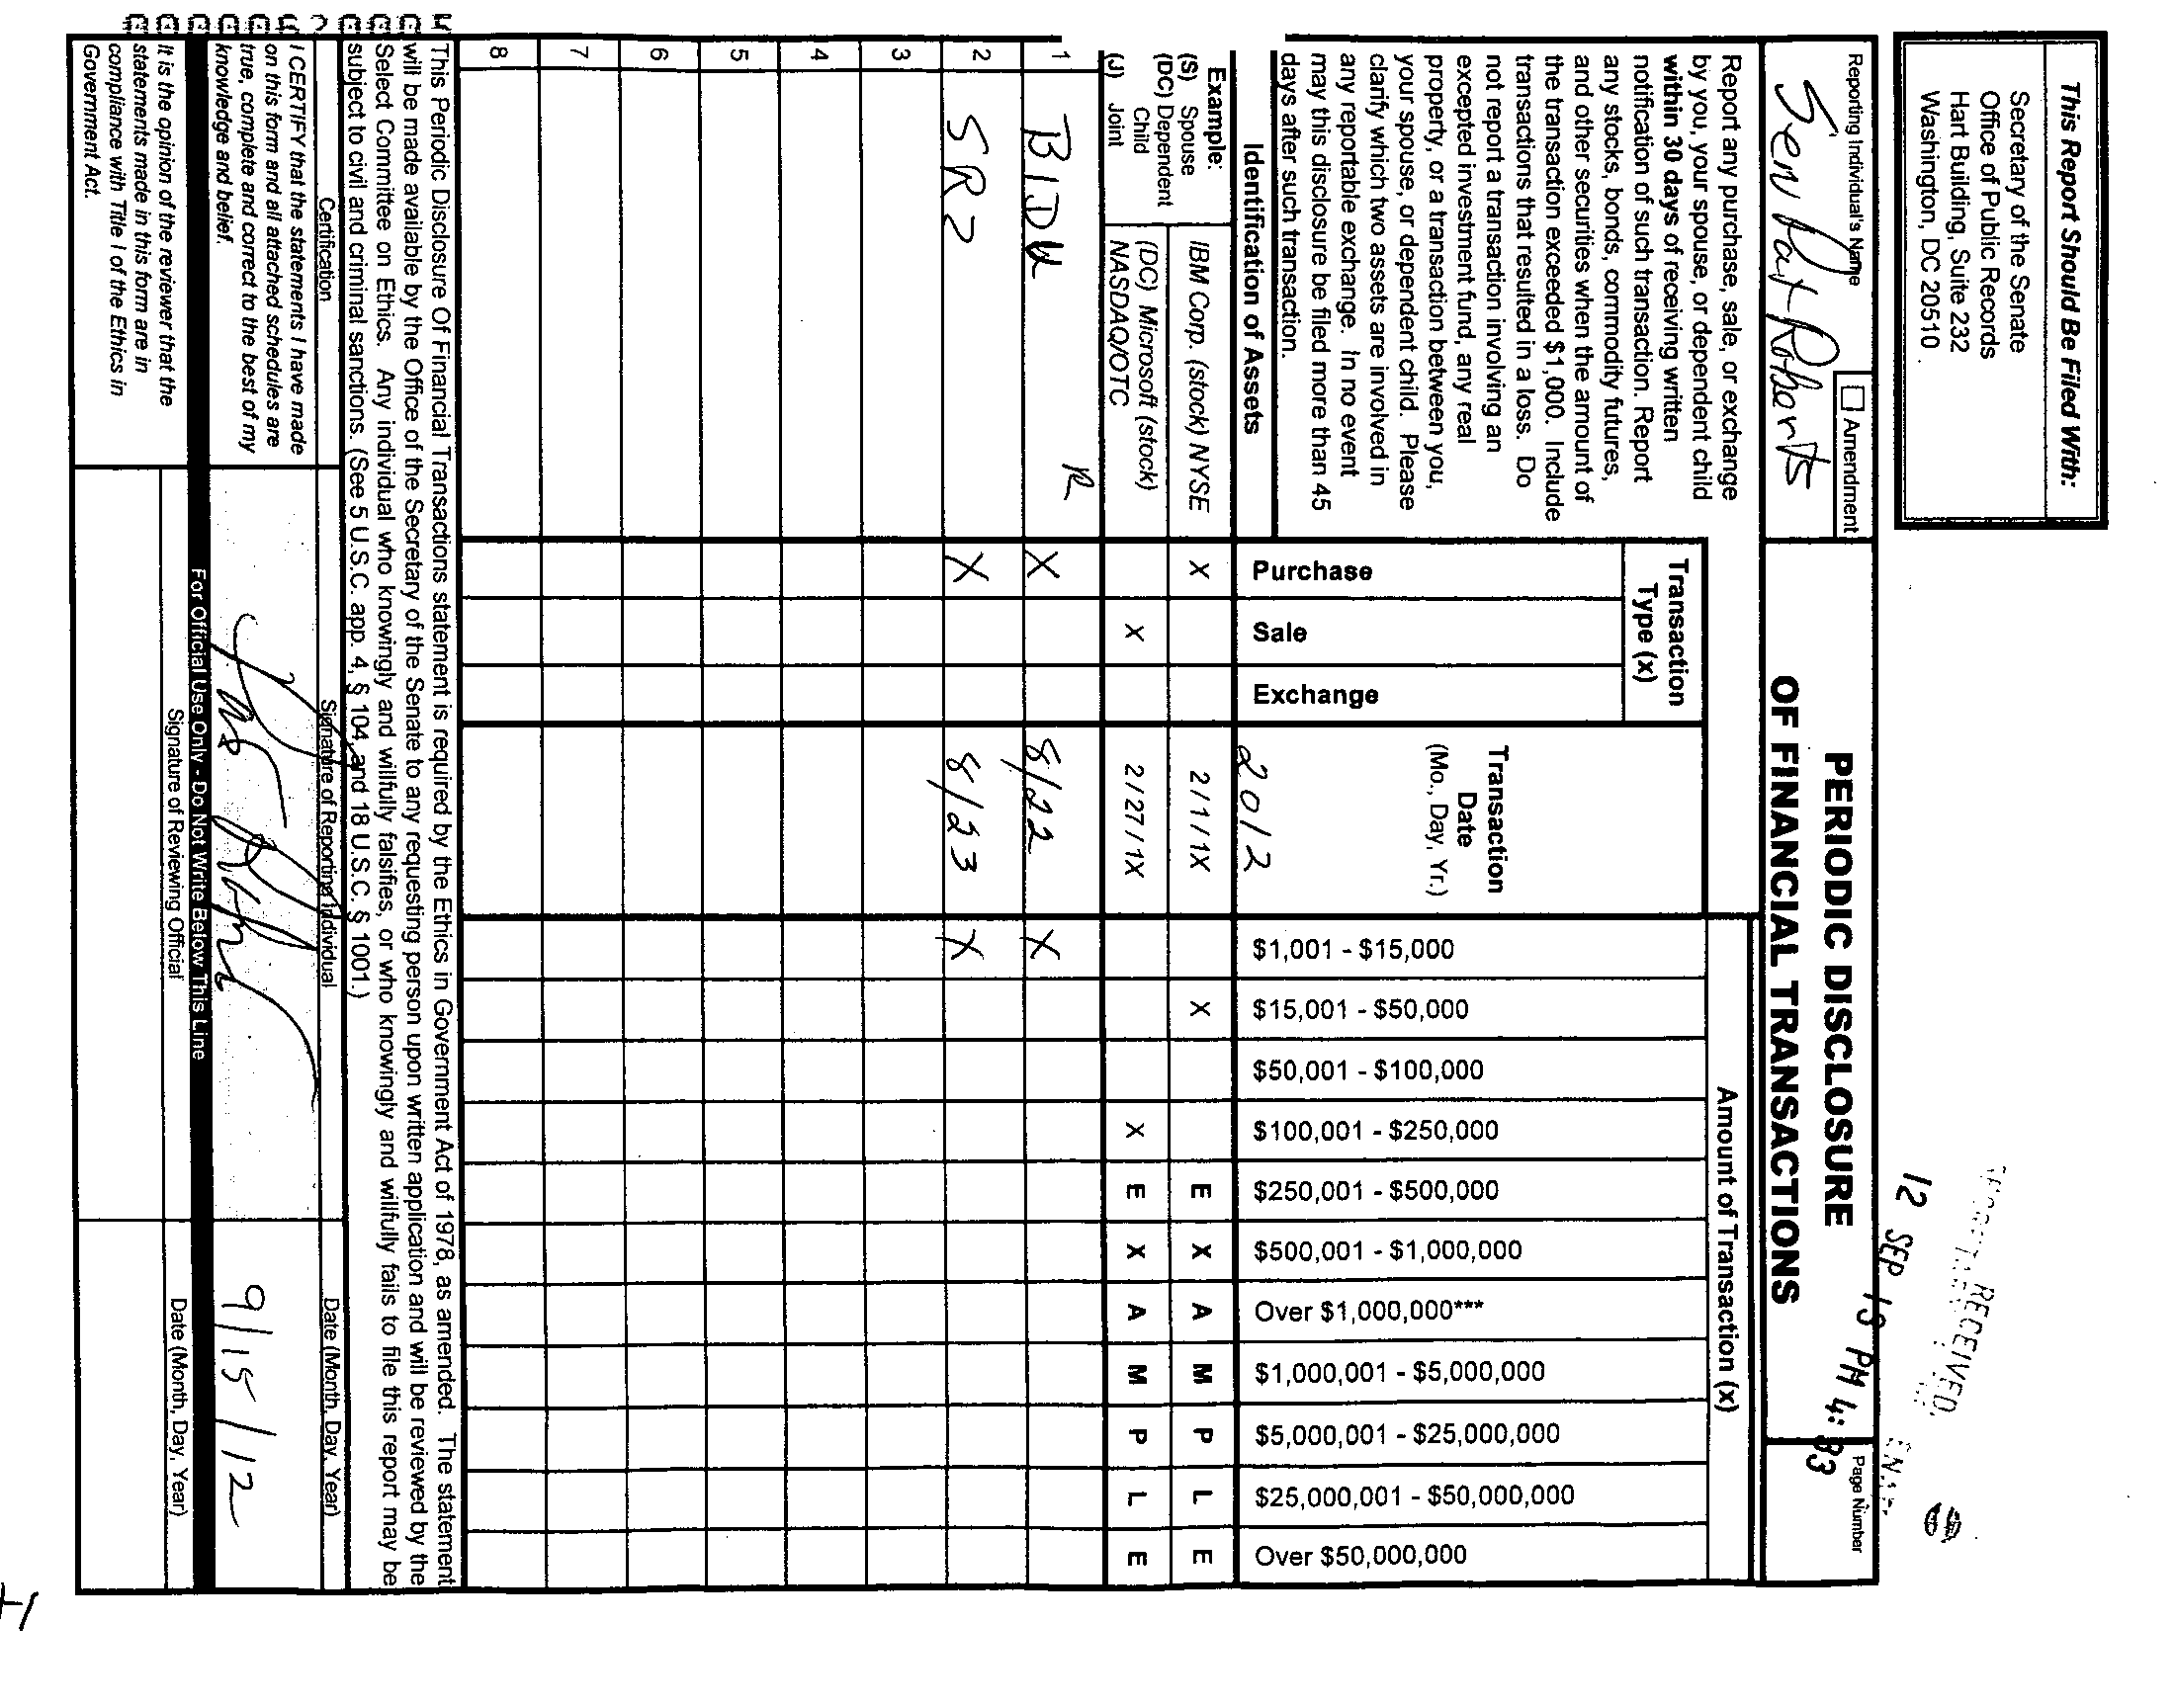 This Report Should Be Filed With:
Secretary of the Senate
Office of Public Records
Hart Building, Suite 232
Washington, DC 20510
RECEIVED
12 SEP 13 PM 4:33
Reporting Individual's Name
Sen Pat Roberts
Amendment
PERIODIC DISCLOSURE
OF FINANCIAL TRANSACTIONS
Page Number
Report any purchase, sale, or exchange
by you, your spouse, or dependent child
within 30 days of receiving written
notification of such transaction. Report
any stocks, bonds, commodity futures,
and other securities when the amount of
the transaction exceeded $1,000. Include
transactions that resulted in a loss. Do
not report a transaction involving an
excepted investment fund, any real
property, or a transaction between you,
your spouse, or dependent child. Please
clarify which two assets are involved in
any reportable exchange. In no event
may this disclosure be filed more than 45
days after such transaction.
Identification of Assets
Transaction
Type (x)
Purchase
Sale
Exchange
Transaction
Date
(Mo., Day, Yr.)
2012
Amount of Transaction (x)
$1,001 - $15,000
$15,001 - $50,000
$50,001 - $100,000
$100,001 - $250,000
$250,001 - $500,000
$500,001 - $1,000,000
Over $1,000,000***
$1,000,001 - $5,000,000
$5,000,001 - $25,000,000
$25,000,001 - $50,000,000
Over $50,000,000
Example:
(S) Spouse
(DC) Dependent
Child
(J) Joint
IBM Corp. (stock) NYSE X 2/1/1X X E X A M P L E
(DC) Microsoft (stock)
NASDAQ/OTC X 2/27/1X X E X A M P L E
1 BIDU R X 8/22 X
2 SRZ X 8/23 X
3
4
5
6
7
8
This Periodic Disclosure Of Financial Transactions statement is required by the Ethics in Government Act of 1978, as amended. The statement
will be made available by the Office of the Secretary of the Senate to any requesting person upon written application and will be reviewed by the
Select Committee on Ethics. Any individual who knowingly and willfully falsifies, or who knowingly and willfully fails to file this report may be
subject to civil and criminal sanctions. (See 5 U.S.C. app. 4, § 104, and 18 U.S.C. § 1001.)
Certification
Signature of Reporting Individual
Date (Month, Day, Year)
I CERTIFY that the statements I have made
on this form and all attached schedules are
true, complete and correct to the best of my
knowledge and belief.
9/15/12
For Official Use Only - Do Not Write Below This Line
It is the opinion of the reviewer that the
statements made in this form are in
compliance with Title I of the Ethics in
Government Act.
Signature of Reviewing Official
Date (Month, Day, Year)